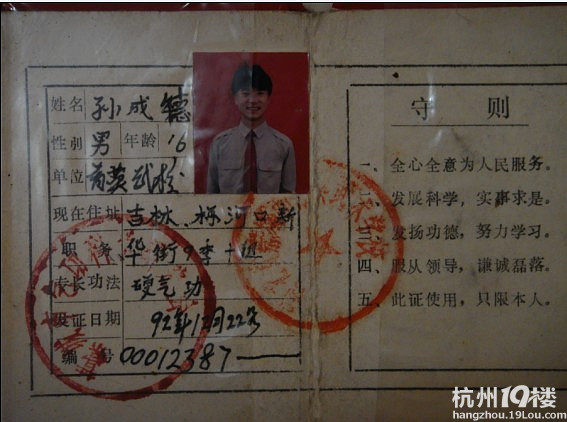 姓名 孙成德
性别 男 年龄 16
单位
现在住址 吉林、梅河口新
职务 华街9委十组
专长功法 硬气功
发证日期 92年12月22号
编号 00012387
守则
一、全心全意为人民服务。
二、发展科学，实事求是。
三、发扬功德，努力学习。
四、服从领导，谦诚磊落。
五、此证使用，只限本人。
杭州19楼
hangzhou.19lou.com